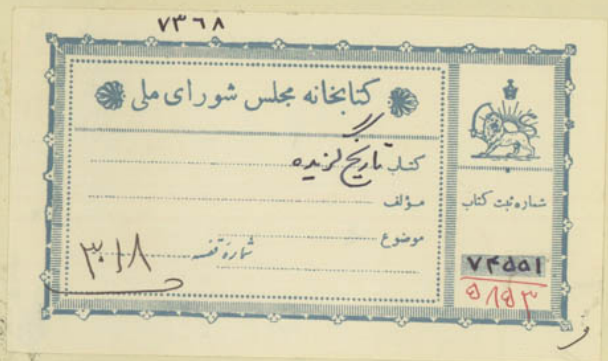 ۷۳۶۸
کتابخانه مجلس شورای ملی
کتاب تاریخ گزیده
مؤلف
موضوع
شماره قفسه
شماره ثبت کتاب
۷۴۵۵۱